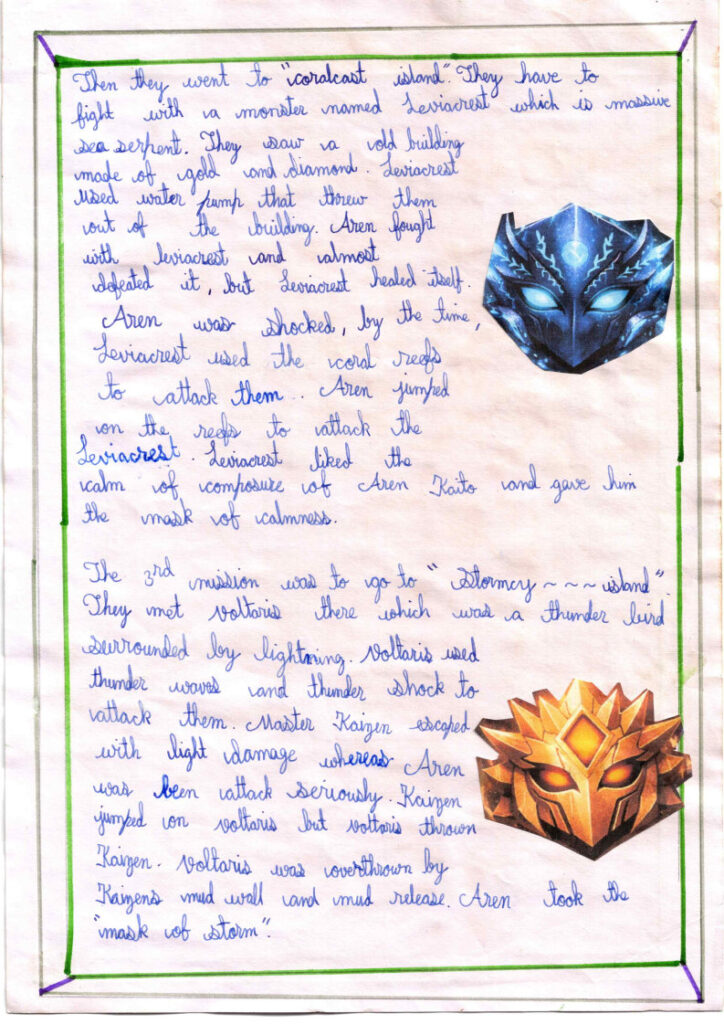 Then they went to "coralcast island". They have to
fight with a monster named Leviacrest which is massive
sea serpent. They saw a old building
made of gold and diamond. Leviacrest
used water pump that threw them
out of the building. Aren fought
with leviacrest and almost
defeated it, but Leviacrest healed itself.
Aren was shocked, by the time,
Leviacrest used the coral reefs
to attack them.. Aren jumped
on the reefs to attack the
Leviacrest. Leviacrest liked the
calm of composure of Aren Kaito and gave him
the mask of calmness.
The 3rd mission was to go to "Stormcry~~~island".
They met voltaris there which was a thunder bird
surrounded by lightning. Voltaris used
thunder waves and thunder shock to
attack them. Master Kaizen escaped
with light damage whereas Aren
was been attack seriously. Kaizen
jumped on voltaris but voltaris thrown
Kaizen. Voltaris was overthrown by
Kaizens mud wall and mud release. Aren took the
"mask of storm".